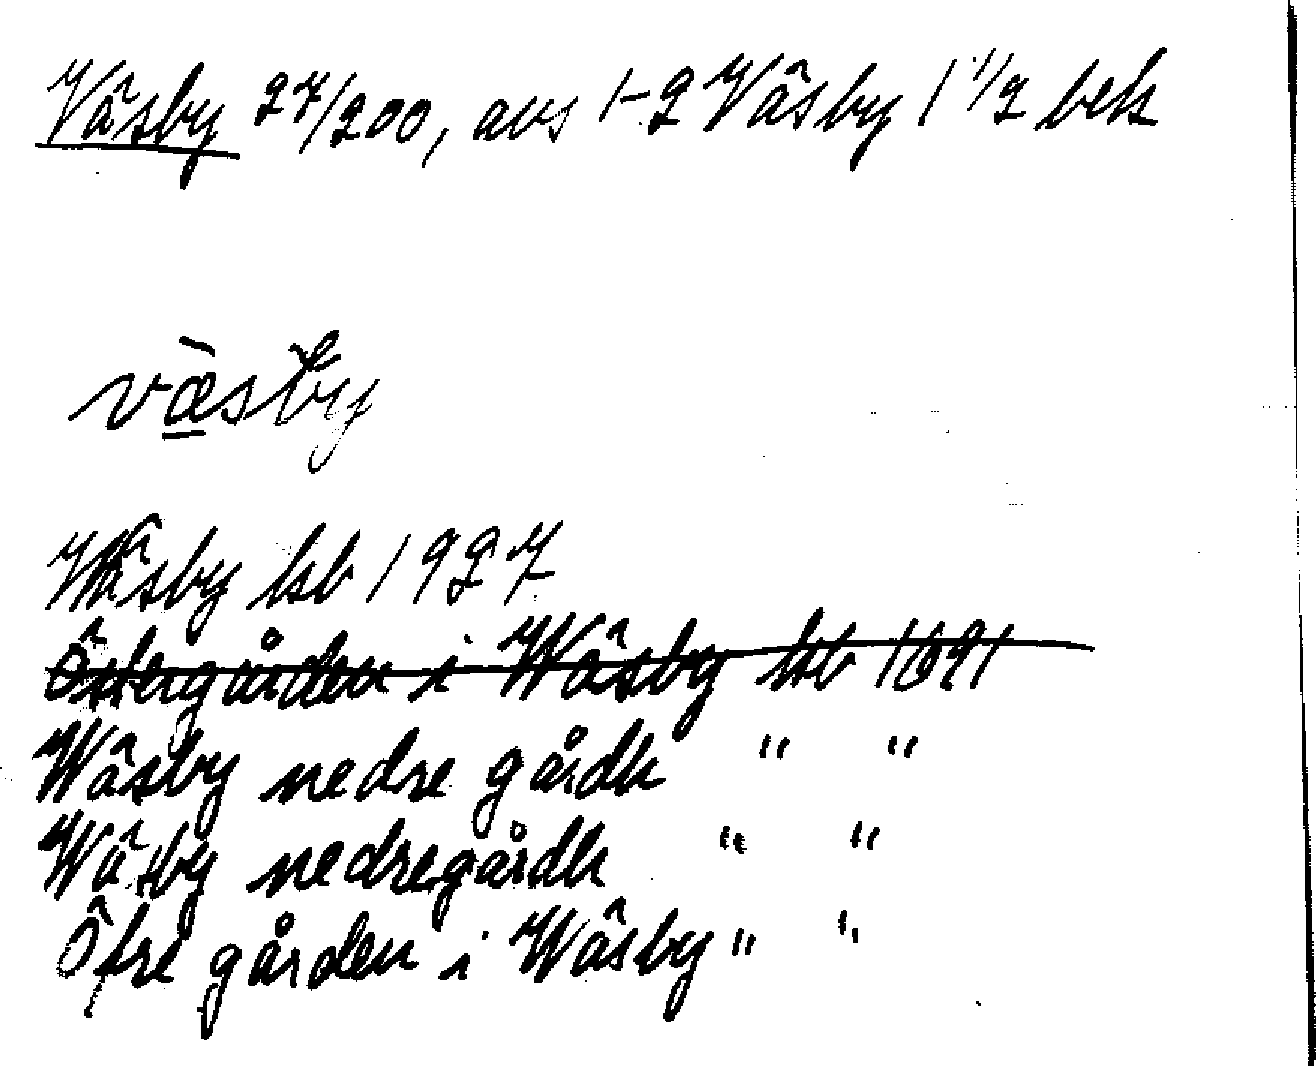 Väsby 27/200, avs 1-2 Väsby 1 1/2 bek
væ̀sby
Wäsby ksb 1927
Östergården i Wäsby hb 1691
Wäsby nedre gårdh " "
Wäsby nedregårdh " "
Öfre gården i Wäsby " "